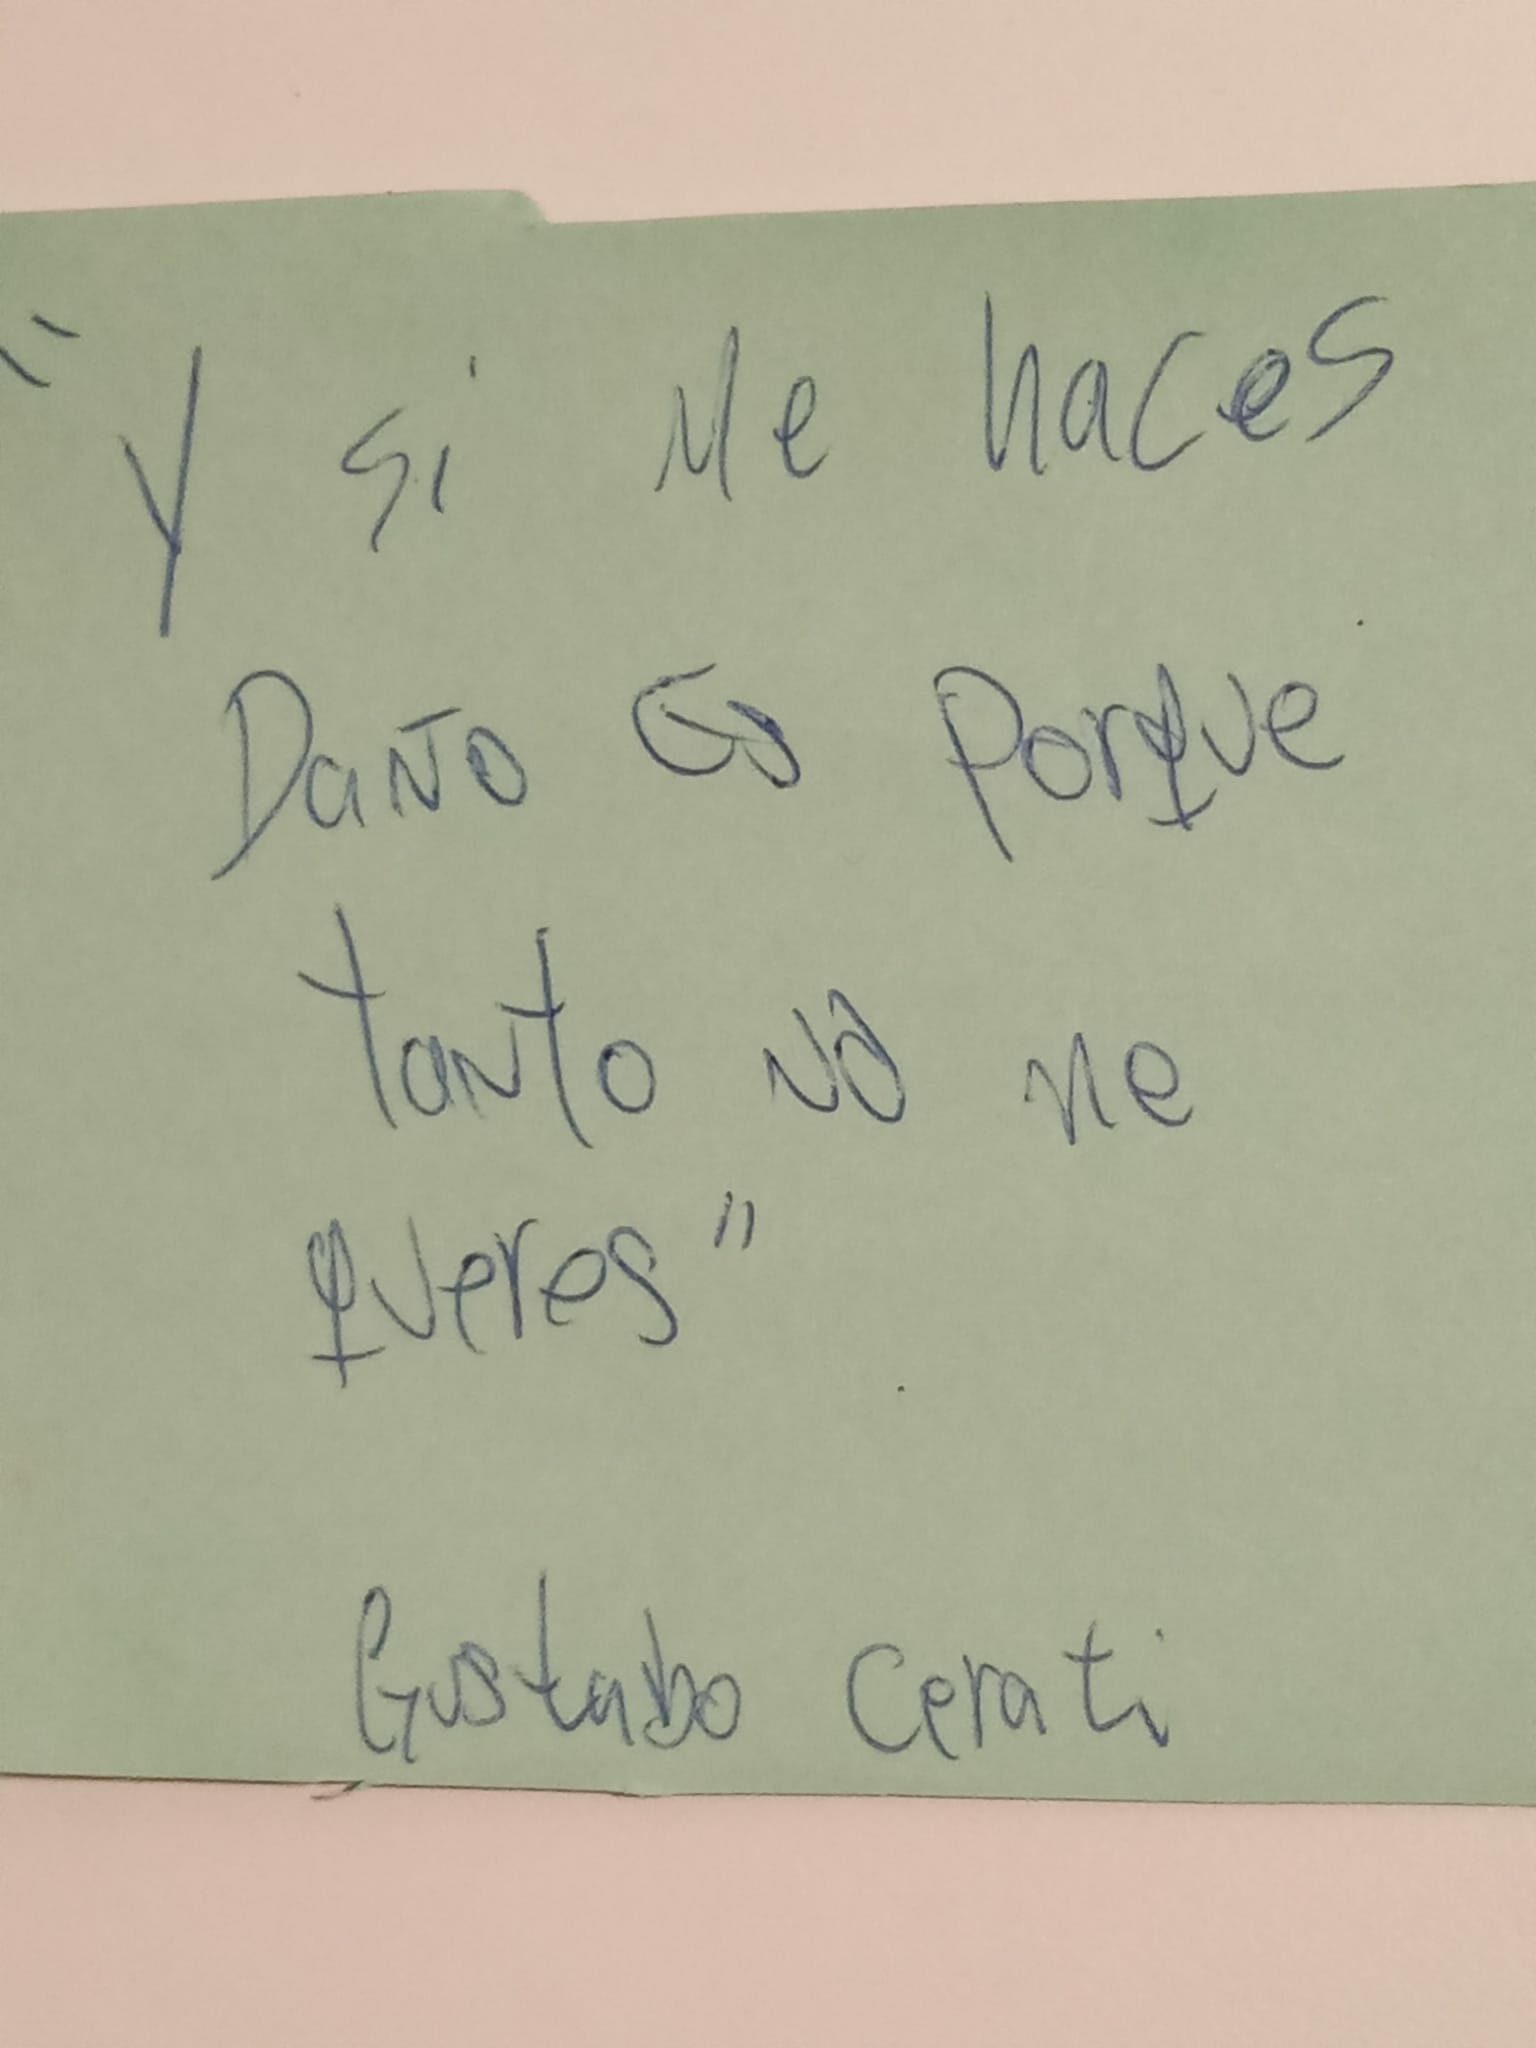 "Y si Me haces
Daño es Porque
tanto no me
queres"
Gustabo Cerati